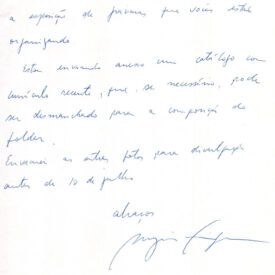 a exposição de gravuras que vocês estão
organizando
Estou enviando anexo um catálogo com
currículo recente, que, se necessário, pode
ser desmanchado para a composição do
folder.
Enviarei as outras fotos para divulgação
antes de 10 de julho
abraços